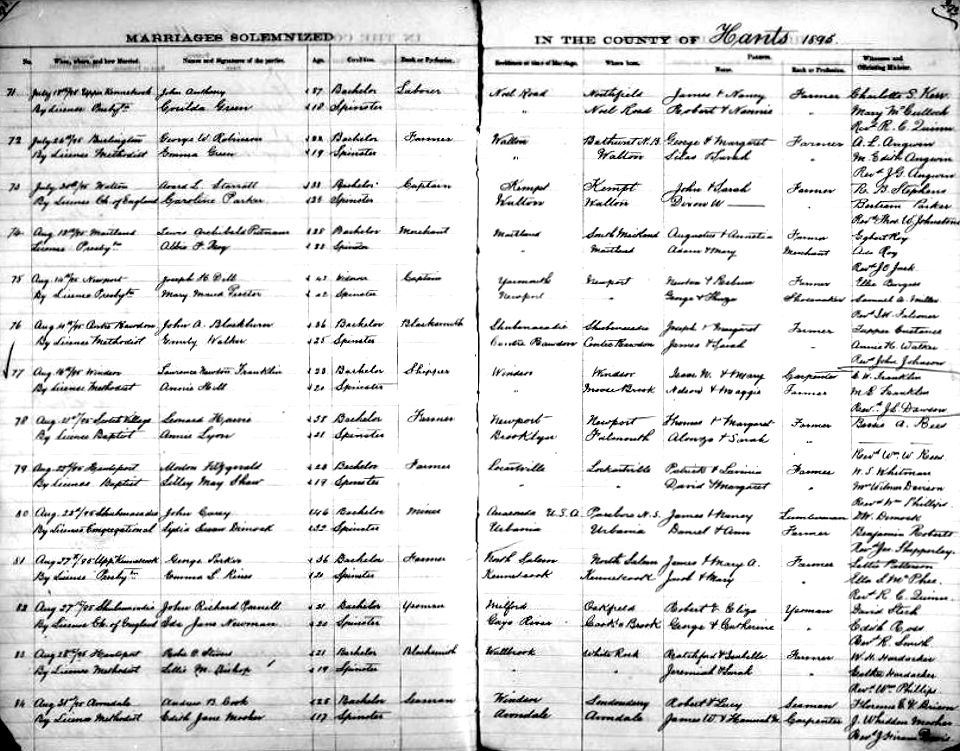 MARRIAGES SOLEMNIZED IN THE COUNTY OF Hants 1895.
No. When, where, and how Married. Names and Signatures of the parties. Age. Condition. Rank or Profession. Residence at time of Marriage. Where born. Parents. Name. Rank or Profession. Witnesses and Officiating Minister.
71 July 18th/95 Upper Kennetcook John Anthony Bachelor Laborer Noel Road Northfield James & Nancy Farmer Charlotte S. Kerr
By License Presbytn Green Spinster Noel Road Robert & Nannie " Mary McCulloch
Revd R. C. Quinn
72 July 24th/95 Burlington George W. Robinson Bachelor Farmer Walton Bathurst N.B. George & Margaret Farmer A. L. Angwin
By License Methodist Emma Green 19 Spinster " Walton Silas & Sarah " M. Edith Angwin
Revd J. G. Angwin
73 July 30th/95 Walton L. Starratt Bachelor Captain Kempt Kempt John & Sarah Farmer B. B. Stephens
By License Ch. of England Caroline Parker Spinster Walton Walton W Bertram Parker
Revd Thos. W. Johnstone
74 Aug 13th/95 Maitland Lewis Archibald Putnam Bachelor Merchant Maitland South Maitland Augustus & Farmer Egbert Roy
License Presbytn Abbie F. Roy Spinster " Maitland Adam & Mary Merchant Ada Roy
Revd J. C. Jack
75 Aug 14th/95 Newport Joseph H. Dell Widower Captain Yarmouth Newport & Farmer Ella Burgess
By License Presbytn Mary Maud Spinster Newport " George & Shoemaker Samuel A. Miller
Revd Falconer
76 Aug 14th/95 Centre Rawdon John A. Blackburn 26 Bachelor Blacksmith Shubenacadie Shubenacadie Joseph & Margaret Farmer Tupper Custance
By License Methodist Emily Walker 25 Spinster Centre Rawdon Centre Rawdon James & Sarah " Annie H. Walker
Revd John Johnson
77 Aug 16th/95 Windsor Laurence Newton Franklin Bachelor Skipper Windsor Windsor Isaac W. & Mary Carpenter E. W. Franklin
By License Methodist Annie Hill Spinster " Moose Brook Nelson & Maggie Farmer M. E. Franklin
Revd J. L. Dawson
78 Aug 21st/95 Scotch Village Leonard Harvie Bachelor Farmer Newport Newport Thomas & Margaret Farmer A. Rees
By License Baptist Annie Lyon 21 Spinster Brooklyn Falmouth Alonzo & Sarah "
Revd Wm W. Rees
79 Aug 22nd/95 Hantsport Fitzgerald Bachelor Farmer Lockartville Patrick & Lavinia Farmer W. S. Whitman
By License Baptist Lilley May Shaw 19 Spinster " " David & Margaret " Mrs Wilmer Davison
Revd Wm Phillips
80 Aug 23rd/95 Shubenacadie John Carey 46 Bachelor Miner Anaconda U.S.A. Parrsboro N.S. James & Nancy Lumberman Dimock
By License Congregational Lydia Susan Dimock Spinster Urbania Urbania Daniel & Ann Farmer Benjamin Roberts
Revd Jas. Shipperley
81 Aug 27th/95 Upp. Kennetcook George Parker 36 Bachelor Farmer North Salem North Salem James & Mary A. Farmer Patterson
By License Presbytn Emma L. Rines 21 Spinster Kennetcook Kennetcook Jacob & Mary " Ella S. McPhee
Revd R. C. Quinn
82 Aug 27th/95 Shubenacadie John Richard Parnell 21 Bachelor Yeoman Milford Oakfield Robert & Eliza Yeoman David Fleck
By License Ch. of England Ida Jane Newman 20 Spinster Gays River Cook's Brook George & Catherine " Edith Ross
Revd R. Smith
83 Aug 28th/95 Hantsport 21 Bachelor Blacksmith Wallbrook White Rock Ratchford & Farmer W. H. Hardacker
By License Methodist M. Bishop 19 Spinster " Jeremiah & Sarah " Hardacker
Revd Wm Phillips
84 Aug 31st/95 Avondale Andrew B. Cook 25 Bachelor Seaman Windsor Londonderry Robert & Lucy Seaman Florence
By License Methodist Edith Jane Mosher 17 Spinster Avondale Avondale James W. & Hannah Carpenter J. Whidden Mosher
Revd J. Hiram Davis